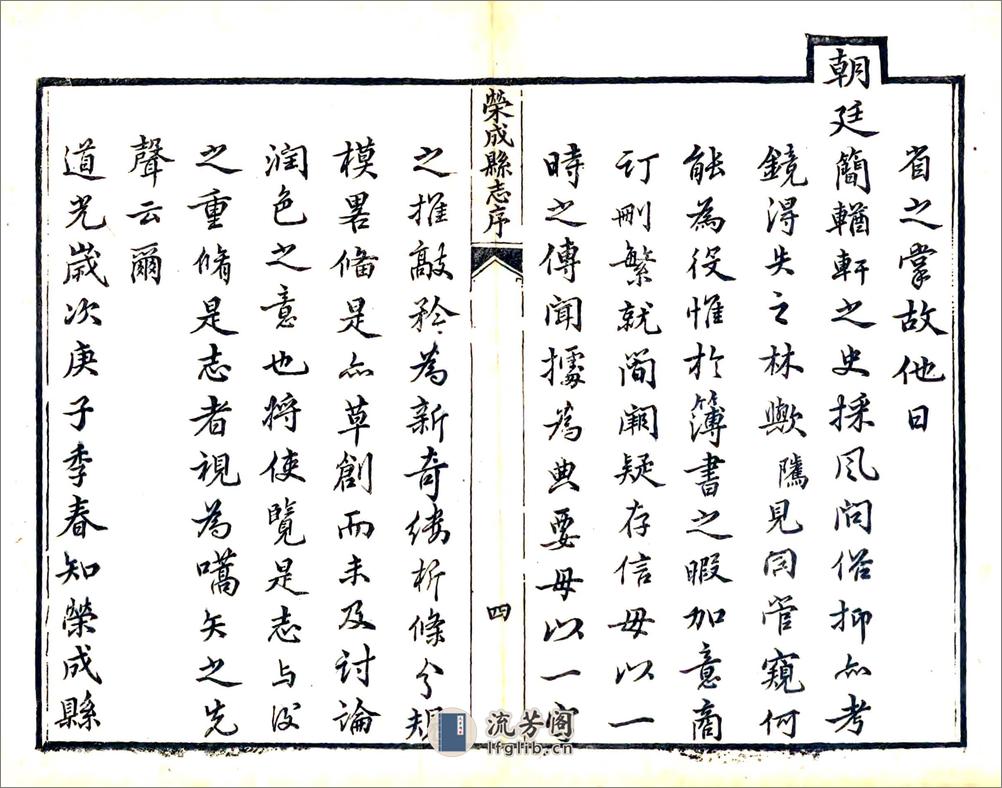 省之掌故他日
朝廷簡輶軒之史採風問俗抑亦考
鏡淂失之林歟隲見闾管窺何
能為役惟於簿書之暇加意商
订刪繁就簡闕疑存信毋以一
時之傳聞據為典要毋以一字
榮成縣志序
四
之推敲矜為新奇縷析條分規
模畧偹是亦草創而未及討論
润色之意也将使覽是志与後
之重脩是志者視為嚆矢之先
聲云爾
道光嵗次庚子季春知榮成縣
流芳阁
lfglib.cn